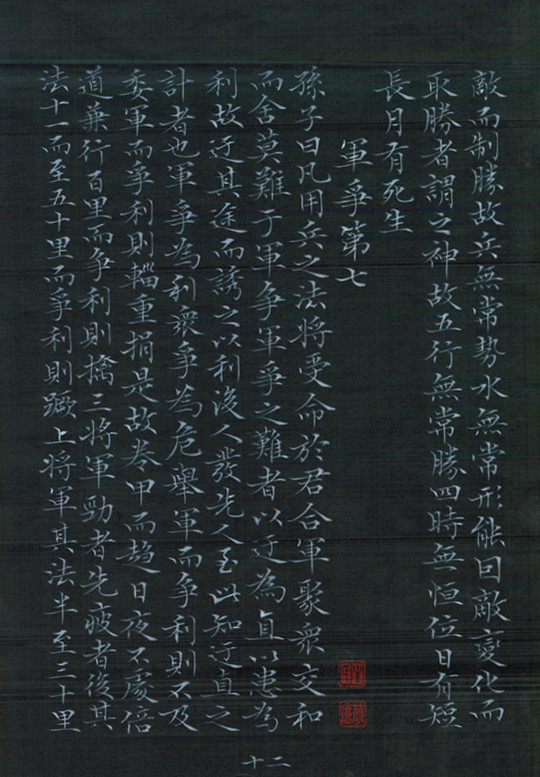 敵而制勝故兵無常勢水無常形能因敵變化而
取勝者謂之神故五行無常勝四時無恒位日有短
長月有死生
軍爭第七
孫子曰凡用兵之法將受命於君合軍聚衆交和
而舍莫難于軍爭軍爭之難者以迂為直以患為
利故迂其途而誘之以利後人發先人至此知迂直之
計者也軍爭為利衆爭為危舉軍而爭利則不及
委軍而爭利則輜重捐是故卷甲而趨日夜不處倍
道兼行百里而爭利則擒三將軍勁者先疲者後其
法十一而至五十里而爭利則蹶上將軍其法半至三十里
十二